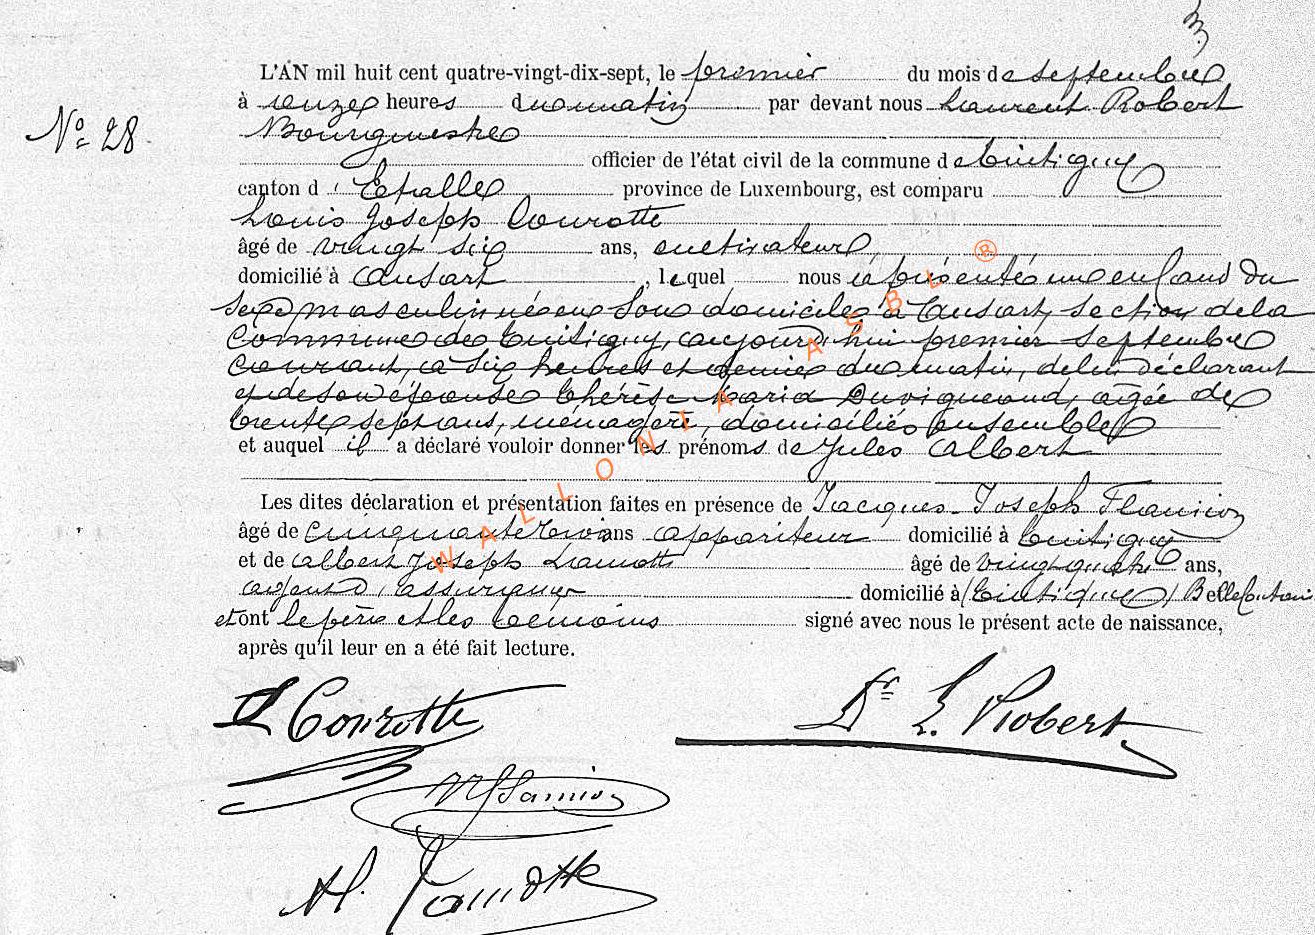 L'AN mil huit cent quatre-vingt-dix-sept, le premier du mois de septembre
à onze heures du matin par devant nous Laurent Robert
N° 28
Bourgmestre
officier de l'état civil de la commune de Tintigny
canton d'Etalle province de Luxembourg, est comparu
Louis Joseph Courotte
âgé de vingt six ans, cultivateur,
domicilié à Ansart, lequel nous a présenté un enfant du
sexe masculin né en son domicile à Ansart, section de la
commune de Tintigny, aujourd'hui premier septembre
courant, à six heures et demie du matin, de lui déclarant
et de son épouse Thérèse Maria Duvigneaud, agée de
trente sept ans, ménagère, domiciliés ensemble
et auquel il a déclaré vouloir donner les prénoms de Jules Albert
Les dites déclaration et présentation faites en présence de Jacques Joseph Flamion
âgé de cinquante trois ans appariteur domicilié à Tintigny
et de Albert Joseph Lamotte âgé de vingt quatre ans,
agent d'assurances domicilié à (Tintigny) Bellefontaine
et ont le père et les témoins signé avec nous le présent acte de naissance,
après qu'il leur en a été fait lecture.
L Courotte
Dr L. Robert
Flamion
A. Lamotte
WALLONIA ASBL ®